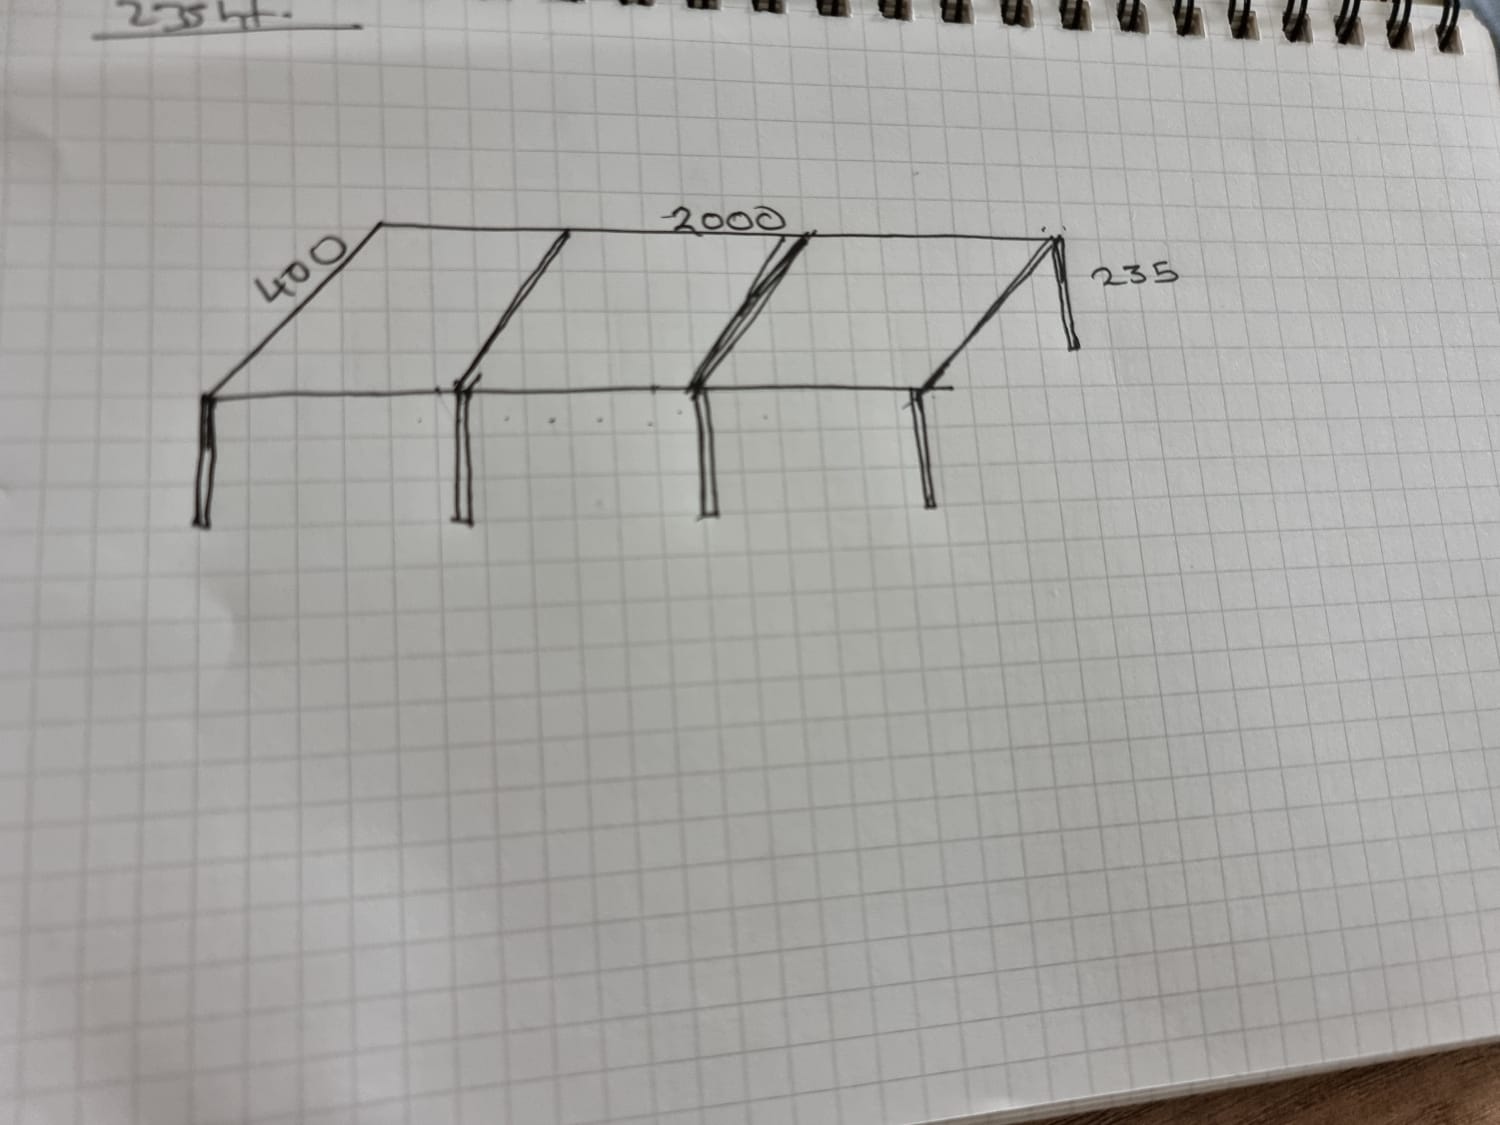 235 ht.
2000
400
235